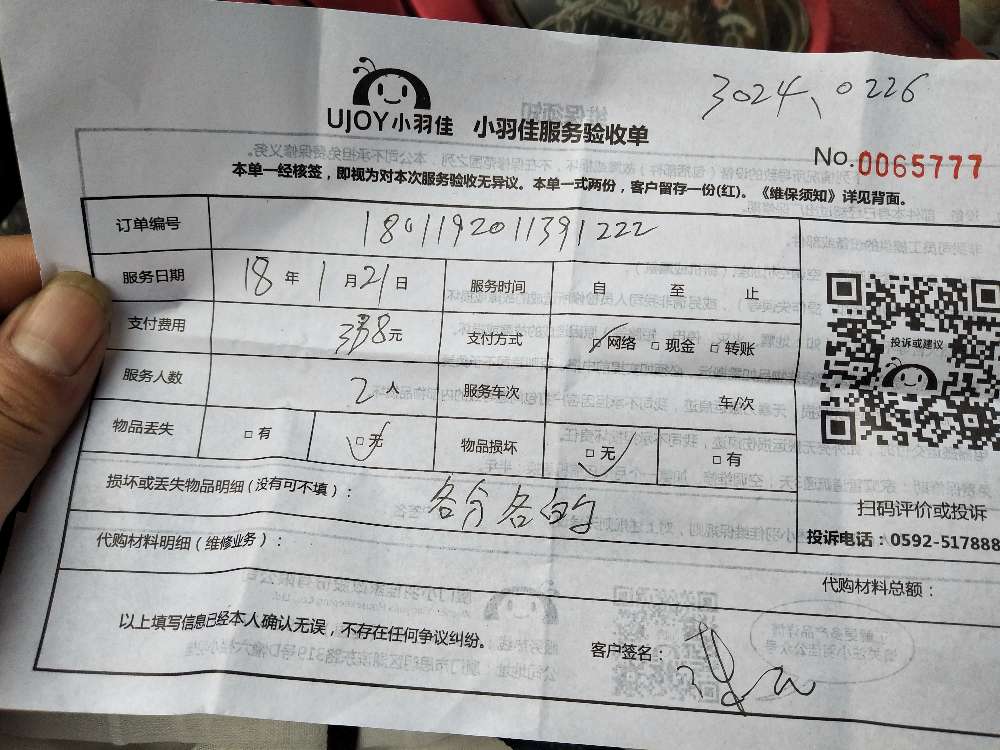 3024、0226
UJOY小羽佳 小羽佳服务验收单
No.0065777
本单一经核签，即视为对本次服务验收无异议。本单一式两份，客户留存一份(红)。《维保须知》详见背面。
订单编号 1801192011391222
服务日期 18年1月21日 服务时间 自 至 止
支付费用 338元 支付方式 □网络 □现金 □转账
服务人数 2人 服务车次 车/次
物品丢失 □有 □无 物品损坏 □无 □有
投诉或建议
扫码评价或投诉
投诉电话：0592-517888
损坏或丢失物品明细(没有可不填)： 各分各的
代购材料明细(维修业务)：
代购材料总额：
以上填写信息已经本人确认无误，不存在任何争议纠纷。
客户签名：